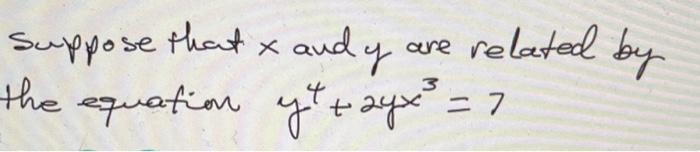 Suppose that x and y are related by
the equation y⁴ + 2yx³ = 7